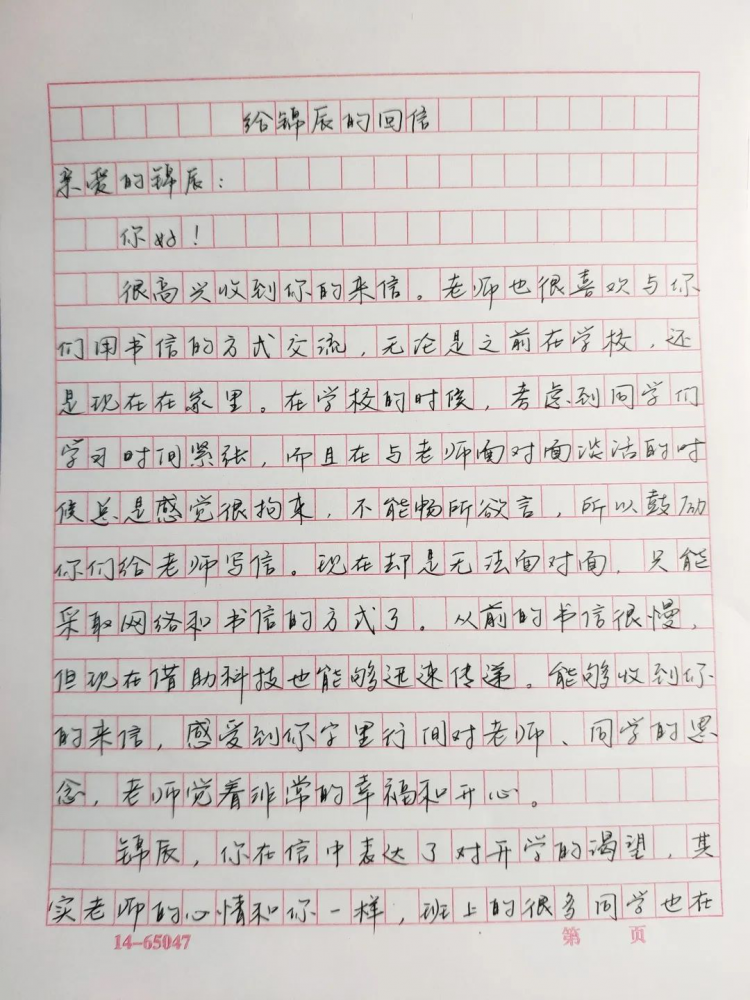 给锦辰的回信
亲爱的锦辰：
你好！
很高兴收到你的来信。老师也很喜欢与你
们用书信的方式交流，无论是之前在学校，还
是现在在家里。在学校的时候，考虑到同学们
学习时间紧张，而且在与老师面对面谈话的时
候总是感觉很拘束，不能畅所欲言，所以鼓励
你们给老师写信。现在却是无法面对面，只能
采取网络和书信的方式了。从前的书信很慢，
但现在借助科技也能够迅速传递。能够收到你
的来信，感受到你字里行间对老师、同学的思
念，老师觉着非常的幸福和开心。
锦辰，你在信中表达了对开学的渴望，其
实老师的心情和你一样，班上的很多同学也在
14-65047 第 页